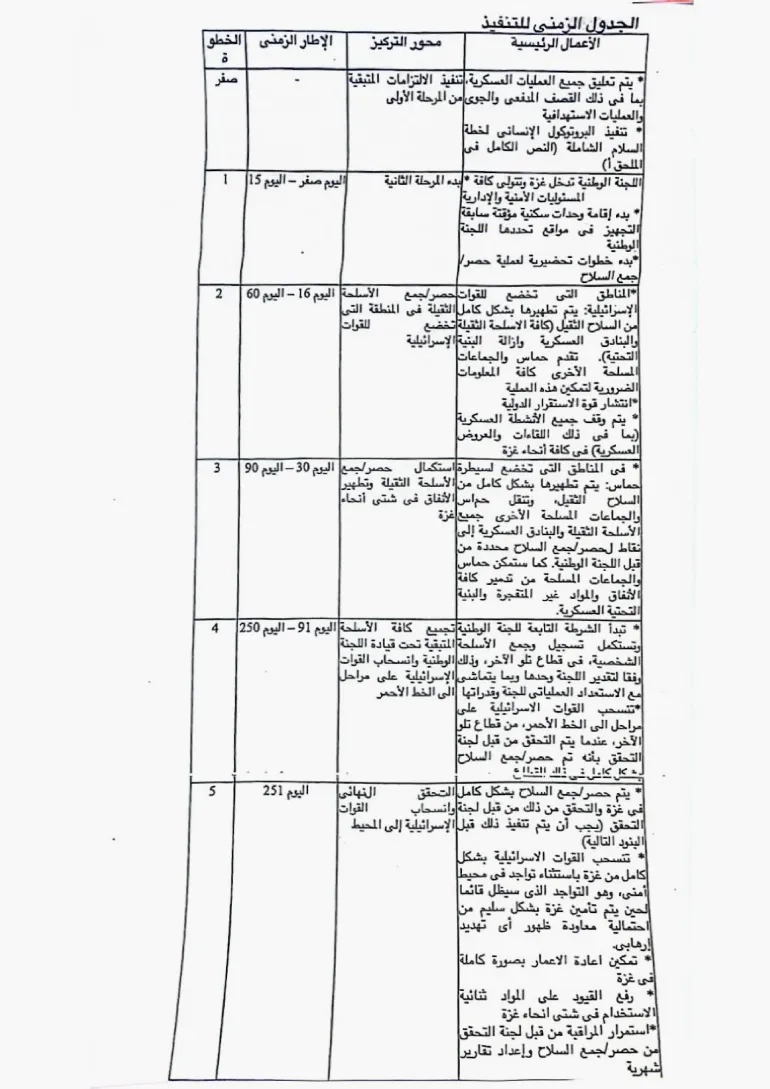 الجدول الزمنى للتنفيذ
الخطوة
الإطار الزمنى
محور التركيز
الأعمال الرئيسية
صفر
-
تنفيذ الالتزامات المتبقية
من المرحلة الأولى
* يتم تعليق جميع العمليات العسكرية،
بما فى ذلك القصف المدفعى والجوى
والعمليات الاستهدافية
* تنفيذ البروتوكول الإنسانى لخطة
السلام الشاملة (النص الكامل فى
الملحق أ)
1
اليوم صفر – اليوم 15
بدء المرحلة الثانية
* اللجنة الوطنية تدخل غزة وتتولى كافة
المسئوليات الأمنية والإدارية
* بدء إقامة وحدات سكنية مؤقتة سابقة
التجهيز فى مواقع تحددها اللجنة
الوطنية
*بدء خطوات تحضيرية لعملية حصر/
جمع السلاح
2
اليوم 16 – اليوم 60
حصر/جمع الأسلحة
الثقيلة فى المنطقة التى
تخضع للقوات
الإسرائيلية
*المناطق التى تخضع للقوات
الإسرائيلية: يتم تطهيرها بشكل كامل
من السلاح الثقيل (كافة الاسلحة الثقيلة
والبنادق العسكرية وازالة البنية
التحتية). تقدم حماس والجماعات
المسلحة الأخرى كافة المعلومات
الضرورية لتمكين هذه العملية
*انتشار قوة الاستقرار الدولية
* يتم وقف جميع الأنشطة العسكرية
(بما فى ذلك اللقاءات والعروض
العسكرية) فى كافة أنحاء غزة
3
اليوم 30 – اليوم 90
استكمال حصر/جمع
الأسلحة الثقيلة وتطهير
الأنفاق فى شتى أنحاء
غزة
* فى المناطق التى تخضع لسيطرة
حماس: يتم تطهيرها بشكل كامل من
السلاح الثقيل، وتنقل حماس
والجماعات المسلحة الأخرى جميع
الأسلحة الثقيلة والبنادق العسكرية إلى
نقاط لحصر/جمع السلاح محددة من
قبل اللجنة الوطنية. كما ستمكن حماس
والجماعات المسلحة من تدمير كافة
الأنفاق والمواد غير المتفجرة والبنية
التحتية العسكرية.
4
اليوم 91 – اليوم 250
تجميع كافة الأسلحة
المتبقية تحت قيادة اللجنة
الوطنية وانسحاب القوات
الإسرائيلية على مراحل
الى الخط الأحمر
* تبدأ الشرطة التابعة للجنة الوطنية
وتستكمل تسجيل وجمع الأسلحة
الشخصية، فى قطاع تلو الآخر، وذلك
وفقا لتقدير اللجنة وحدها وبما يتماشى
مع الاستعداد العملياتى للجنة وقدراتها
*تنسحب القوات الاسرائيلية على
مراحل الى الخط الأحمر، من قطاع تلو
الآخر، عندما يتم التحقق من قبل لجنة
التحقق بأنه تم حصر/جمع السلاح
بشكل كامل فى ذلك القطاع
5
اليوم 251
التحقق النهائى
وانسحاب القوات
الإسرائيلية إلى المحيط
* يتم حصر/جمع السلاح بشكل كامل
فى غزة والتحقق من ذلك من قبل لجنة
التحقق (يجب أن يتم تنفيذ ذلك قبل
البنود التالية)
* تنسحب القوات الاسرائيلية بشكل
كامل من غزة باستثناء تواجد فى محيط
أمنى، وهو التواجد الذى سيظل قائما
لحين يتم تأمين غزة بشكل سليم من
احتمالية معاودة ظهور أى تهديد
إرهابى.
* تمكين اعادة الاعمار بصورة كاملة
فى غزة
* رفع القيود على المواد ثنائية
الاستخدام فى شتى انحاء غزة
*استمرار المراقبة من قبل لجنة التحقق
من حصر/جمع السلاح وإعداد تقارير
شهرية